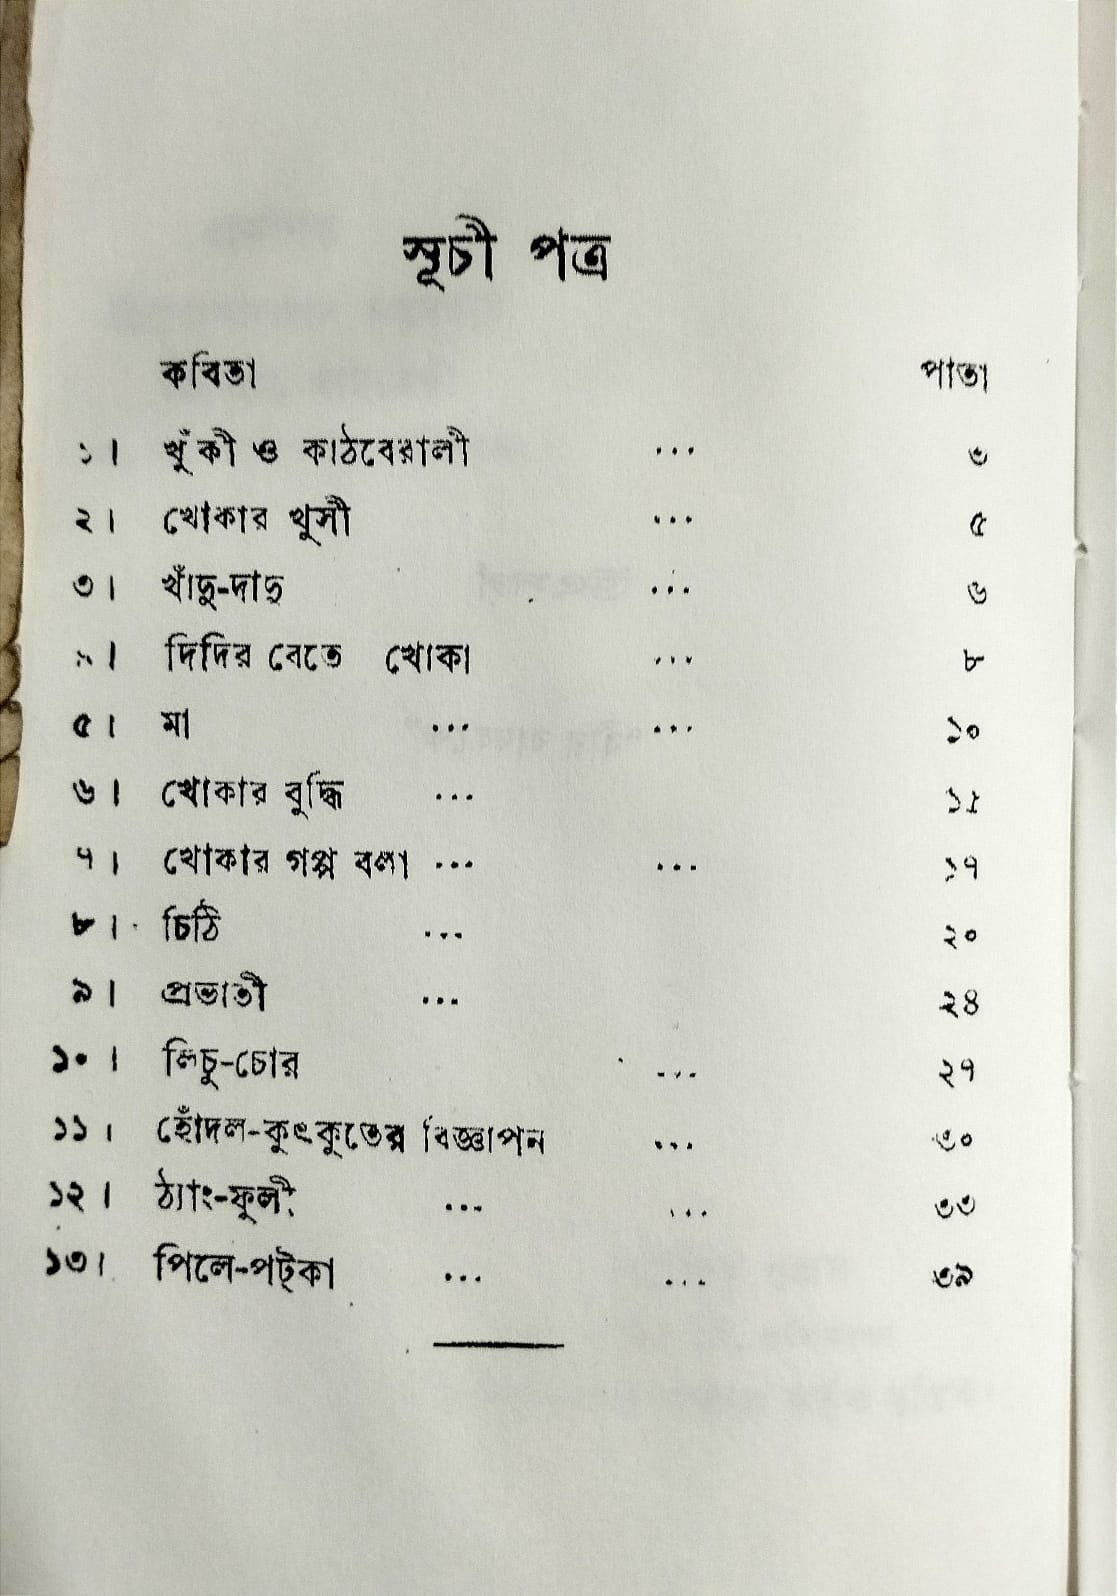 সূচী পত্র
কবিতা পাতা
১। খুঁকী ও কাঠবেরালী ... ৩
২। খোকার খুসী ... ৫
৩। খাঁদু-দাদু ... ৬
৪। দিদির বেতে খোকা ... ৮
৫। মা ... ... ১০
৬। খোকার বুদ্ধি ... ১৫
৭। খোকার গপ্প বলা ... ... ১৭
৮। চিঠি ... ২০
৯। প্রভাতী ... ২৪
১০। লিচু-চোর ... ২৭
১১। হোঁদল-কুৎকুতের বিজ্ঞাপন ... ৩০
১২। ঠ্যাং-ফুলী ... ... ৩৩
১৩। পিলে-পট্‌কা ... ... ৩৯